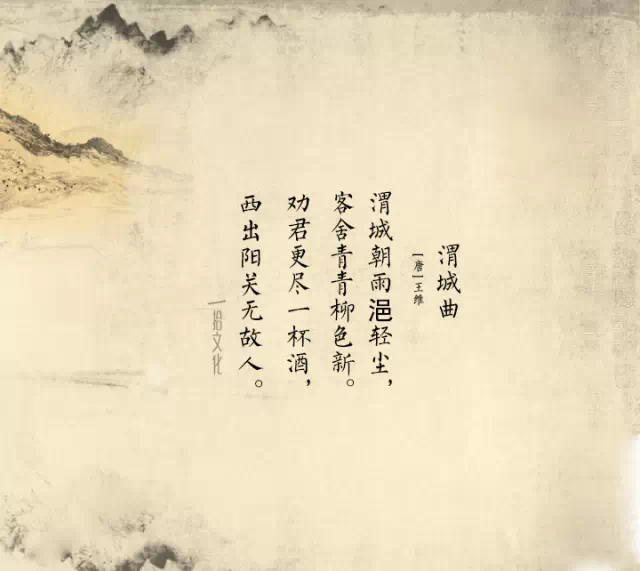 渭城曲
[唐]王维
渭城朝雨浥轻尘，
客舍青青柳色新。
劝君更尽一杯酒，
西出阳关无故人。
一拾文化